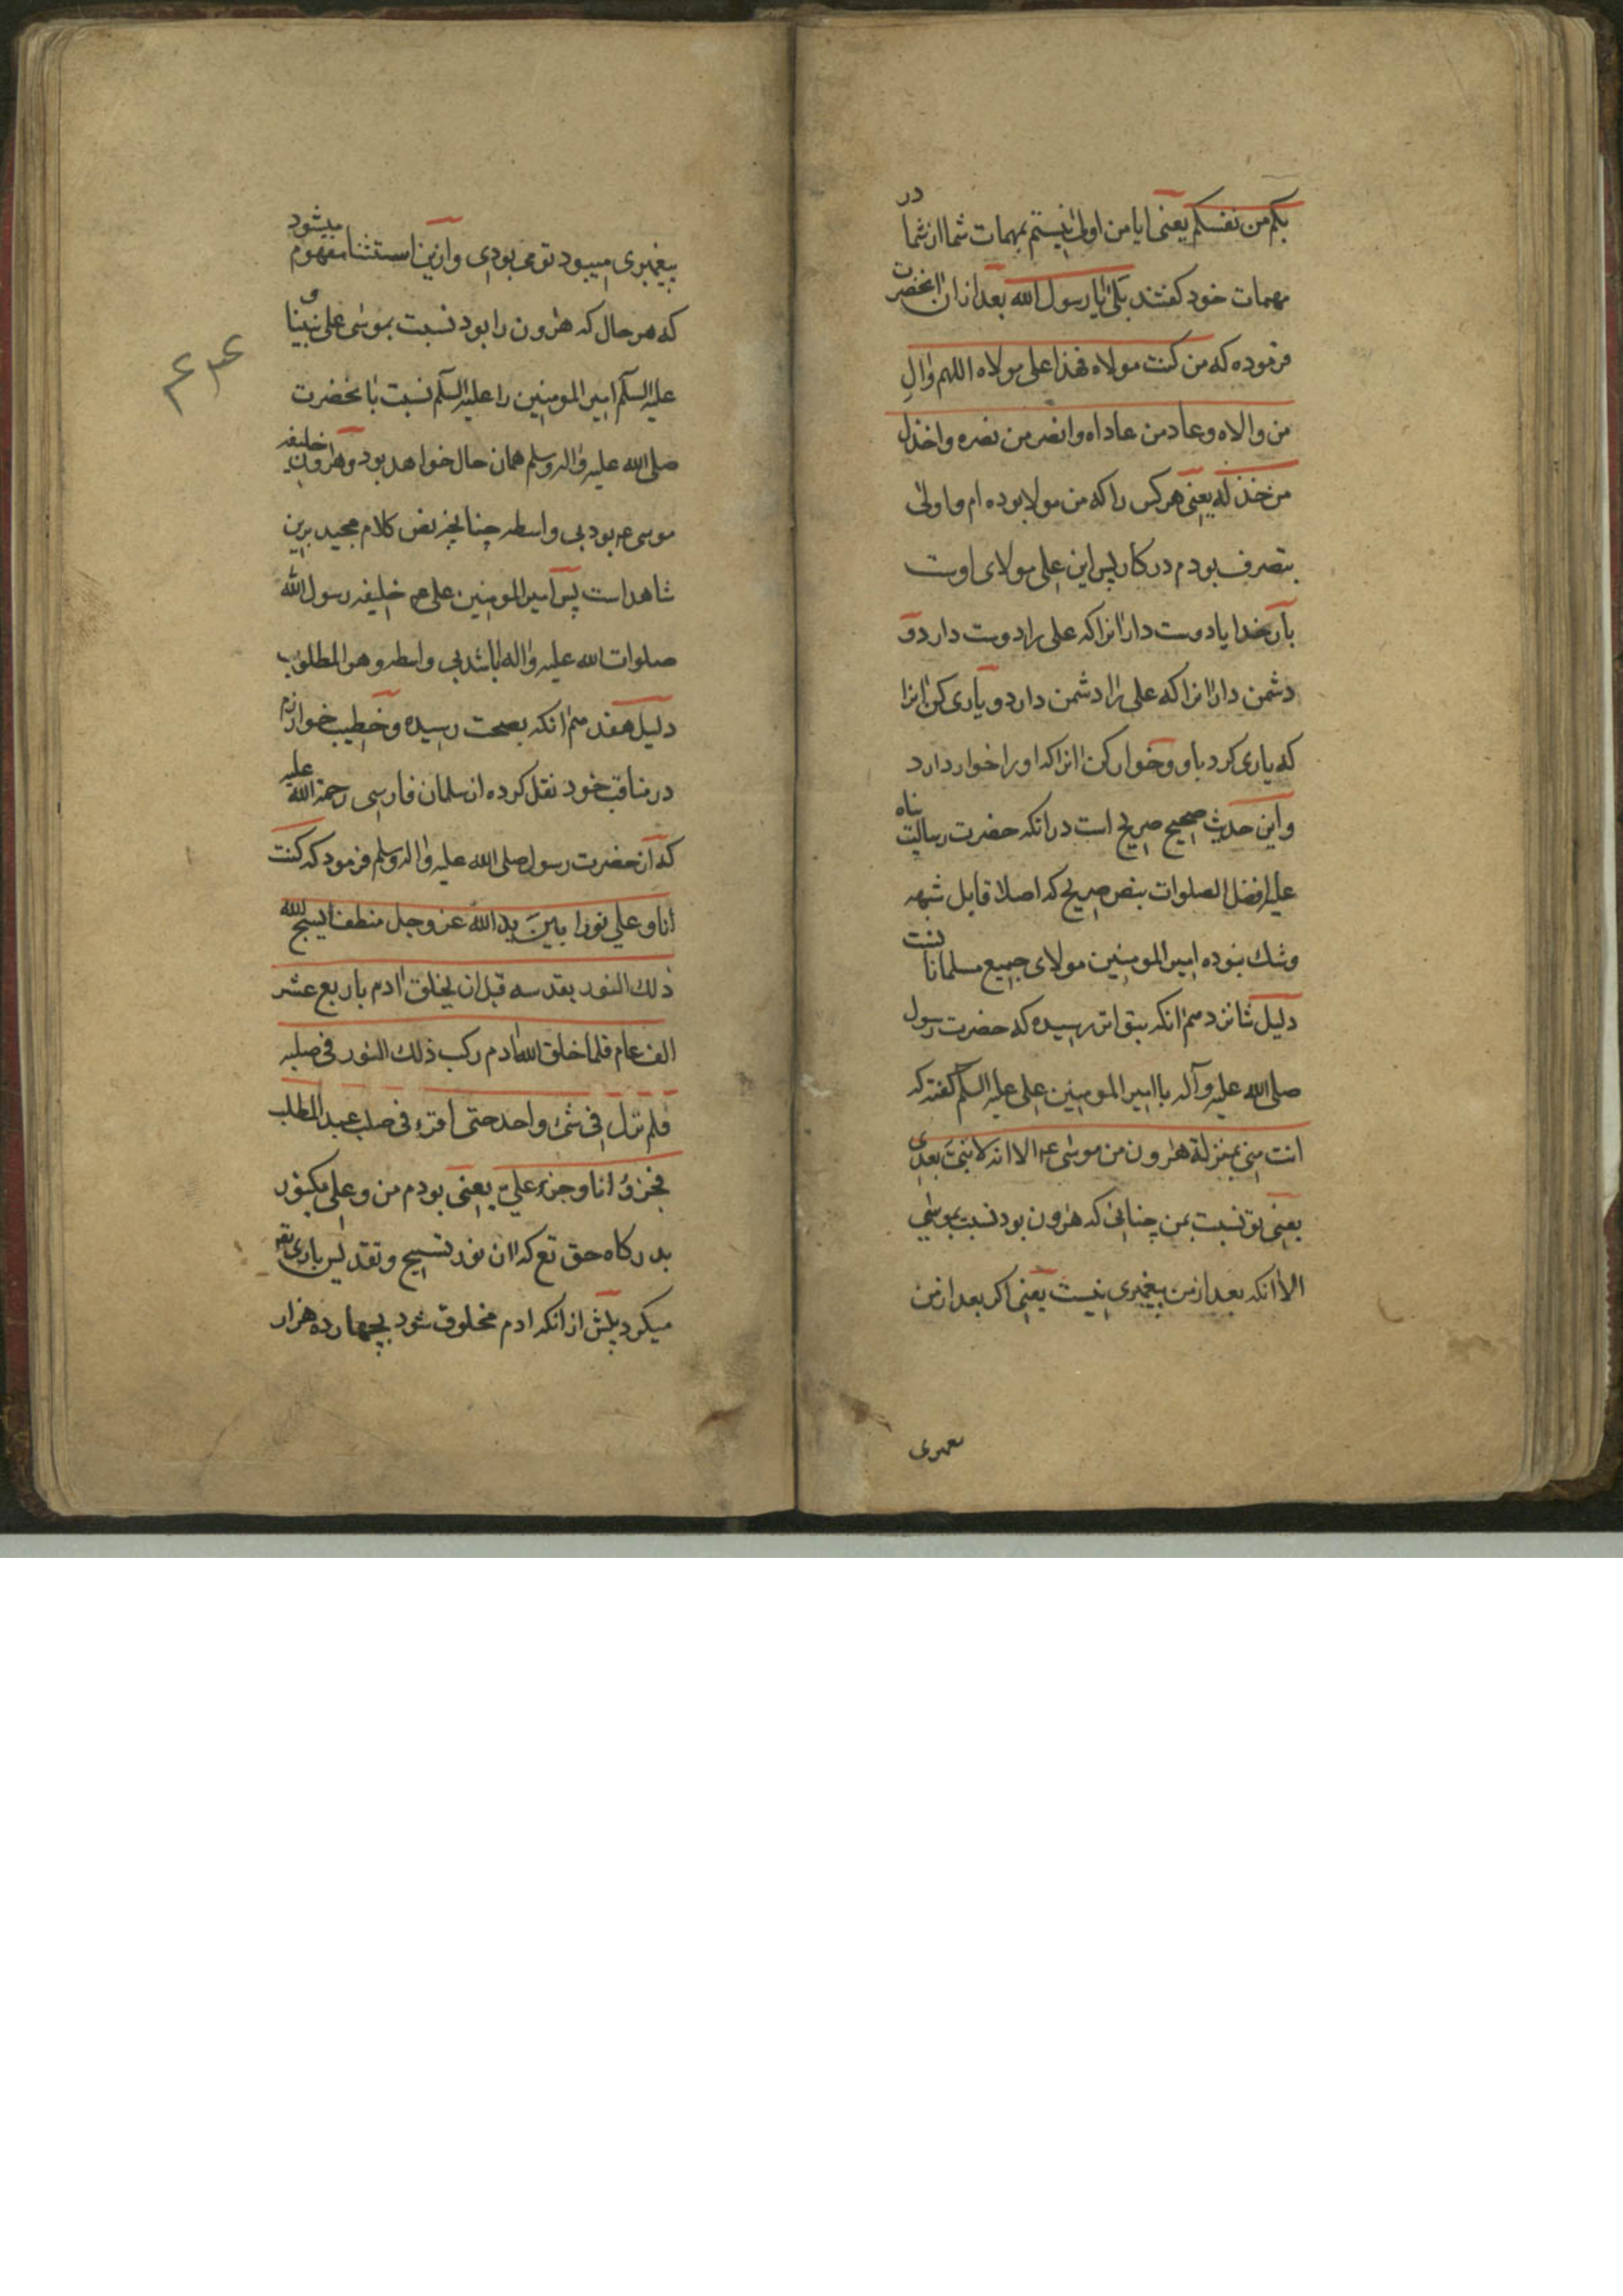 بکم من نفسکم یعنی ایا من اولی نیستم بمهمات شما از شما در
مهمات خود کفتند بلی یا رسول الله بعد از ان انحضرت
فرموده که من کنت مولاه فهذا علی مولاه اللهم وال
من والاه و عاد من عاداه وانصر من نصره واخذل
من خذله یعنی هرکس را که من مولا بوده ام و اولی
بتصرف بودم در کار پس این علی مولای اوست
بار خدایا دوست دار انرا که علی را دوست دارد و
دشمن دار انرا که علی را دشمن دارد و یاری کن انرا
که یاری کرد باو و خوار کن انرا که او را خوار دارد
و این حدیث صحیح صریح است در انکه حضرت رسالت پناه
علیه افضل الصلوات بنص صریح که اصلا قابل شبهه
وشک نبوده امیر المومنین مولای جمیع مسلمانا
دلیل شانزدهم انکه بتواتر رسیده که حضرت رسول
صلی الله علیه وآله با امیر المومنین علی علیه السلم کفته که
انت منی بمنزلة هرون من موسی ع الا انه لا نبی بعدی
یعنی تو نسبت بمن چنانی که هرون بود نسبت بموسی
الا انکه بعد از من پیغمبری نیست یعنی اکر بعد از من
پیغمبری میبود تو می بودی و ازین استثنا مفهوم میشود
که هر حال که هرون را بود نسبت بموسی علی نبینا و
علیه السلم امیر المومنین را علیه السلم نسبت بانحضرت
صلی الله علیه واله وسلم همان حال خواهد بود و هرون خلیفه
موسی ع بود بی واسطه چنانچه نص کلام مجید برین
شاهد است پس امیر المومنین علی ع خلیفه رسول الله
صلوات الله علیه واله باشد بی واسطه وهو المطلوب
دلیل هفدهم انکه بصحت رسیده و خطیب خوارزم
در مناقب خود نقل کرده از سلمان فارسی رحمة الله علیه
که ان حضرت رسول صلی الله علیه واله وسلم فرمود که کنت
انا و علی نورا بین ید الله عز وجل منطفا یسبح لله
ذلک النور یقدسه قبل ان یخلق ادم باربع عشر
الف عام فلما خلق الله ادم رکب ذلک النور فی صلبه
فلم نزل فی شئ واحد حتی افترء فی صلب عبد المطلب
فجزؤ انا وجزء علی یعنی بودم من و علی یکنور
بدرکاه حق تع که ان نور تسبیح و تقدیس باری تع
میکرد پیش از انکه ادم مخلوق شود بچهارده هزار